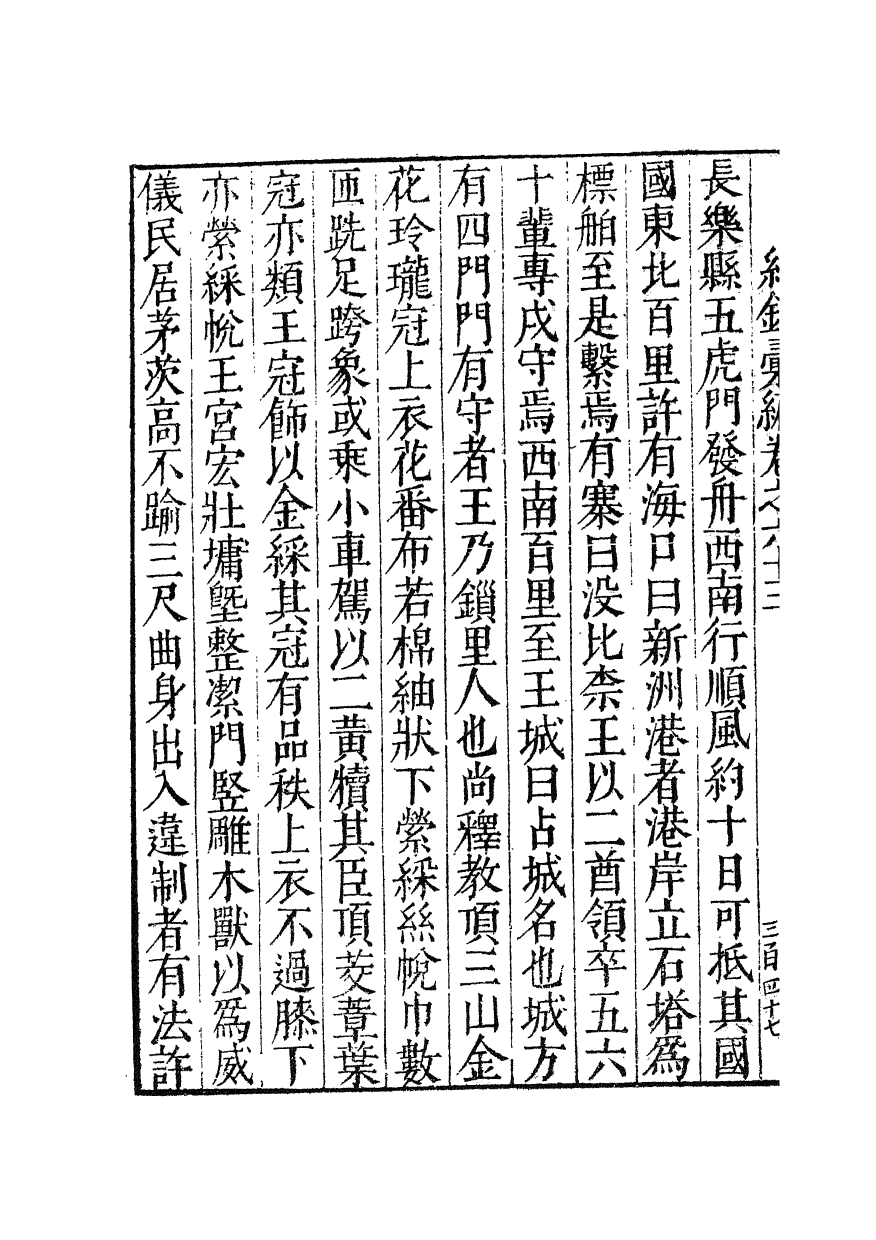 紀錄彙編卷之六十三
三百四十七
長樂縣五虎門發舟西南行順風約十日可抵其國
國東北百里許有海口曰新洲港者港岸立石塔爲
標舶至是繫焉有寨曰没比柰王以二酋領卒五六
十輩專戍守焉西南百里至王城曰占城名也城方
有四門門有守者王乃鎖里人也尚釋教頂三山金
花玲瓏冠上衣花番布若棉紬狀下縈綵絲帨巾數
匝跣足跨象或乘小車駕以二黄犢其臣頂茭蕈葉
冠亦類王冠飾以金綵其冠有品秩上衣不過膝下
亦縈綵帨王宮宏壯墉塈整潔門竪雕木獸以爲威
儀民居茅茨高不踰三尺曲身出入違制者有法許